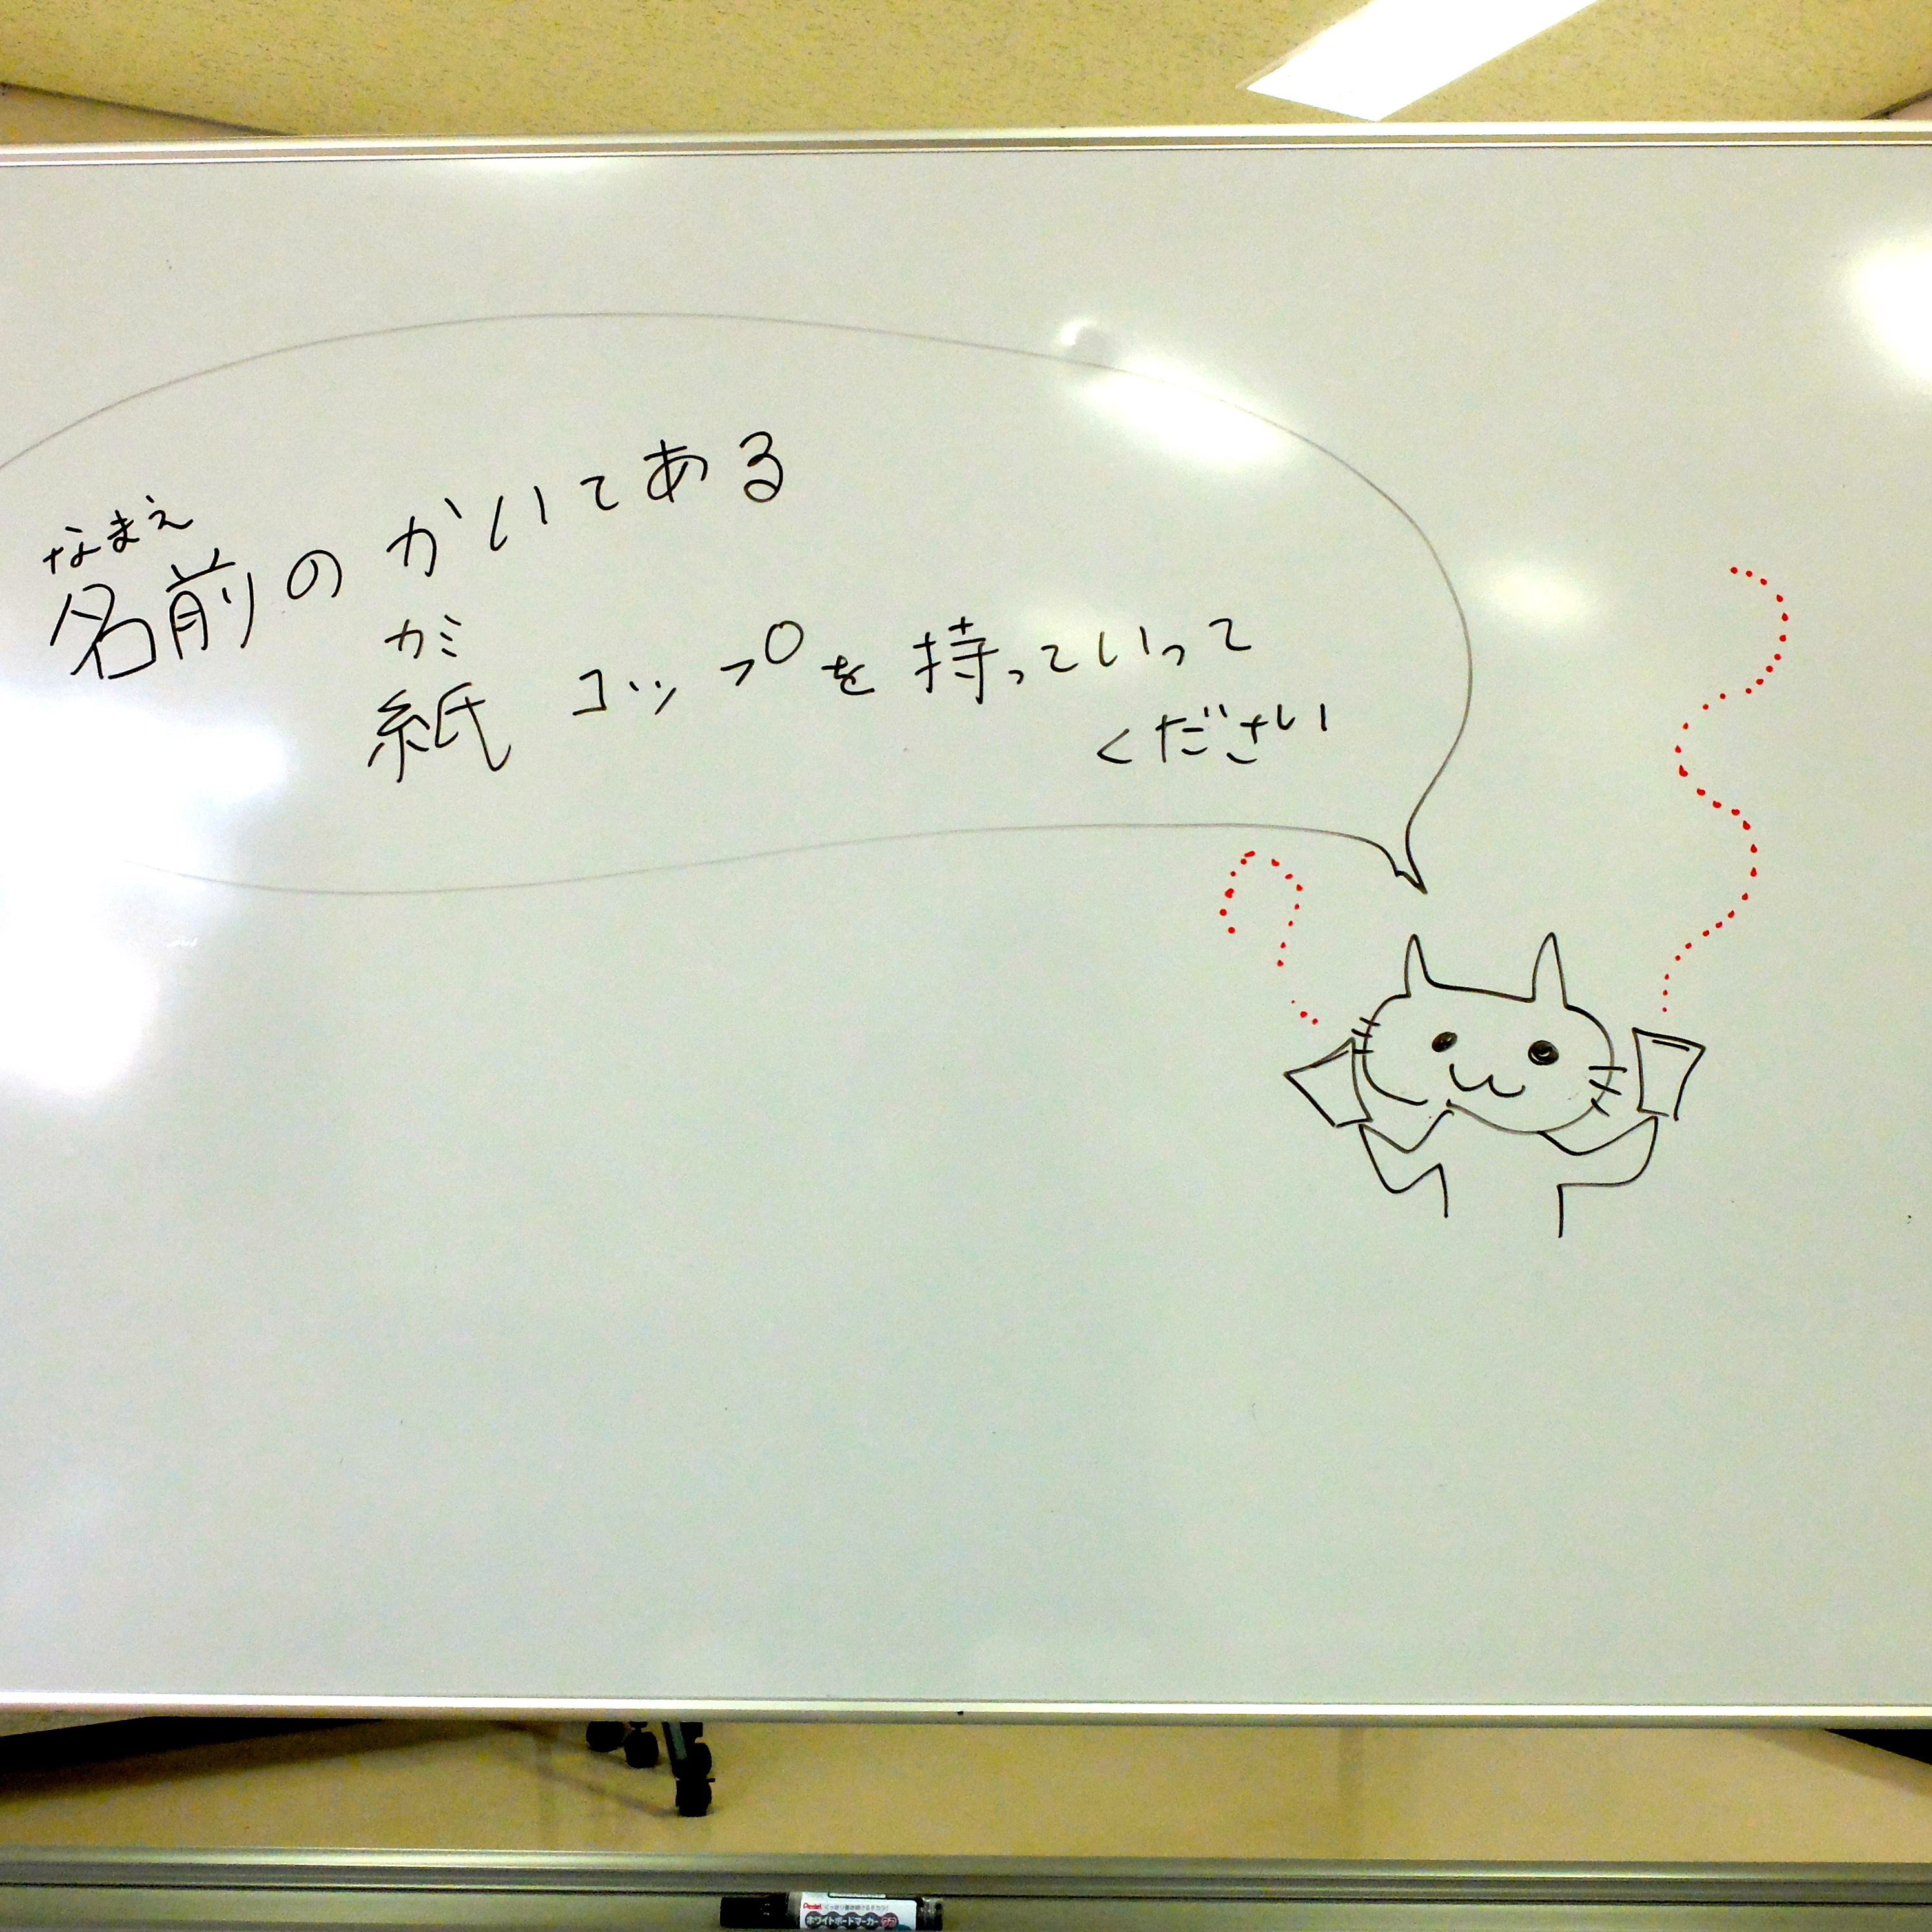 なまえ
名前のかいてある
がミ
紙コップを持っていって
ください
Pentel
ホワイトボードマーカー